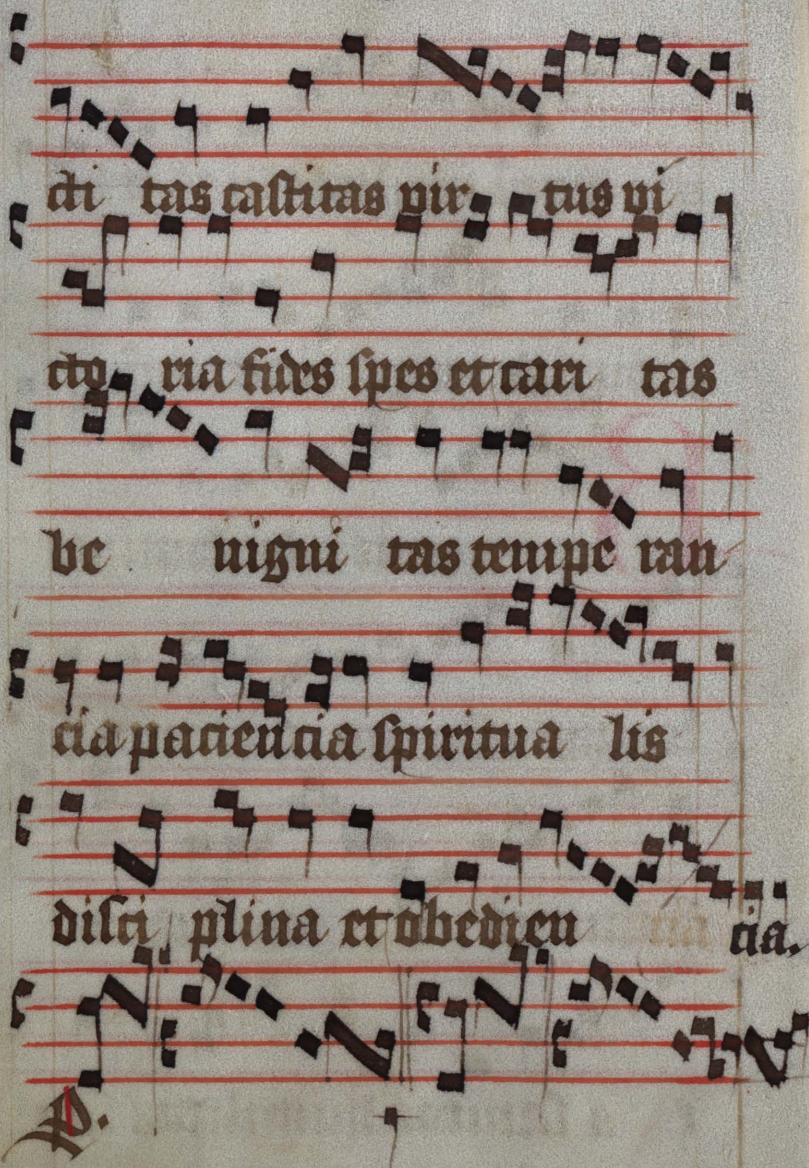 cti tas castitas vir tus vi
cto ria fides spes et cari tas
be nigni tas tempe ran
cia paciencia spiritua lis
disci plina et obedien cia.
P.